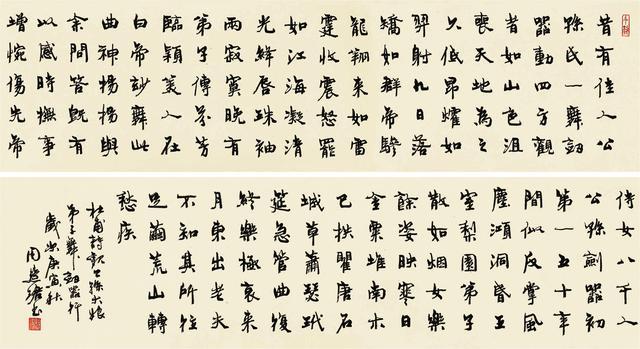 昔有佳人公
孫氏一舞劍
器動四方觀
者如山色沮
喪天地為之
久低昂燿如
羿射九日落
矯如群帝驂
龍翔來如雷
霆收震怒罷
如江海凝清
光絳唇珠袖
兩寂寞晚有
弟子傳芬芳
臨潁美人在
白帝妙舞此
曲神揚揚與
余問答既有
以感時撫事
增惋傷先帝
侍女八千人
公孫劍器初
第一五十年
間似反掌風
塵澒洞昏王
室梨園弟子
散如烟女樂
餘姿映寒日
金粟堆南木
已拱瞿唐石
城草蕭瑟玳
筵急管曲復
終樂極哀來
月東出老夫
不知其所往
足繭荒山轉
愁疾
杜甫詩觀公孫大娘
弟子舞劍器行
歲次庚寅秋
周慧珺书